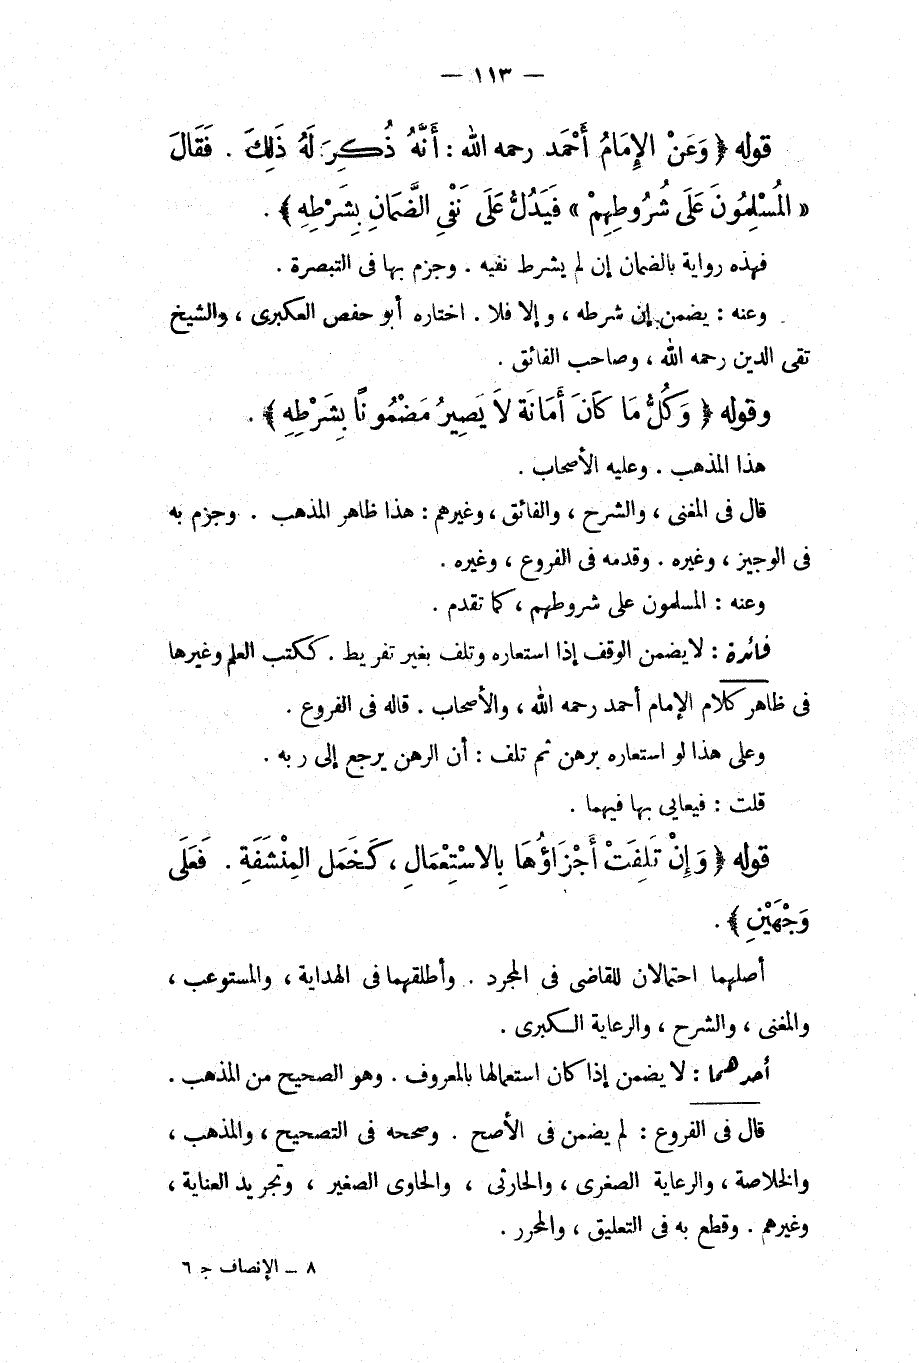 — ١١٣ —
قوله ﴿ وَعَنْ الإِمَامُ أَحْمَد رحمه الله : أَنَّهُ ذُكِرَ لَهُ ذَلِكَ . فَقَالَ
« المُسْلِمُونَ عَلَى شُرُوطِهِمْ » فَيَدُلُّ عَلَى نَفْيِ الضَّمَانِ بِشَرْطِهِ ﴾ .
فهذه رواية بالضمان إن لم يشرط نفيه . وجزم بها فى التبصرة .
وعنه : يضمن إن شرطه ، وإلا فلا . اختاره أبو حفص العكبرى ، والشيخ
تقى الدين رحمه الله ، وصاحب الفائق .
وقوله ﴿ وَكُلُّ مَا كَانَ أَمَانَة لاَ يَصِيرُ مَضْمُونًا بِشَرْطِهِ ﴾ .
هذا المذهب . وعليه الأصحاب .
قال فى المغنى ، والشرح ، والفائق ، وغيرهم : هذا ظاهر المذهب . وجزم به
فى الوجيز ، وغيره . وقدمه فى الفروع ، وغيره .
وعنه : المسلمون على شروطهم ، كما تقدم .
فائدة : لا يضمن الوقف إذا استعاره وتلف بغير تفريط . ككتب العلم وغيرها
فى ظاهر كلام الإمام أحمد رحمه الله ، والأصحاب . قاله فى الفروع .
وعلى هذا لو استعاره برهن ثم تلف : أن الرهن يرجع إلى ربه .
قلت : فيعايى بها فيهما .
قوله ﴿ وَإِنْ تَلِفَتْ أَجْزَاؤُهَا بِالاسْتِعْمَالِ ، كَخَمَل المِنْشَفَةِ . فَعَلَى
وَجْهَيْنِ ﴾ .
أصلهما احتمالان للقاضى فى المجرد . وأطلقهما فى الهداية ، والمستوعب ،
والمغنى ، والشرح ، والرعاية الكبرى .
أحدهما : لا يضمن إذا كان استعمالها بالمعروف . وهو الصحيح من المذهب .
قال فى الفروع : لم يضمن فى الأصح . وصححه فى التصحيح ، والمذهب ،
والخلاصة ، والرعاية الصغرى ، والحارثى ، والحاوى الصغير ، وتجريد العناية ،
وغيرهم . وقطع به فى التعليق ، والمحرر .
٨ – الإنصاف ج ٦